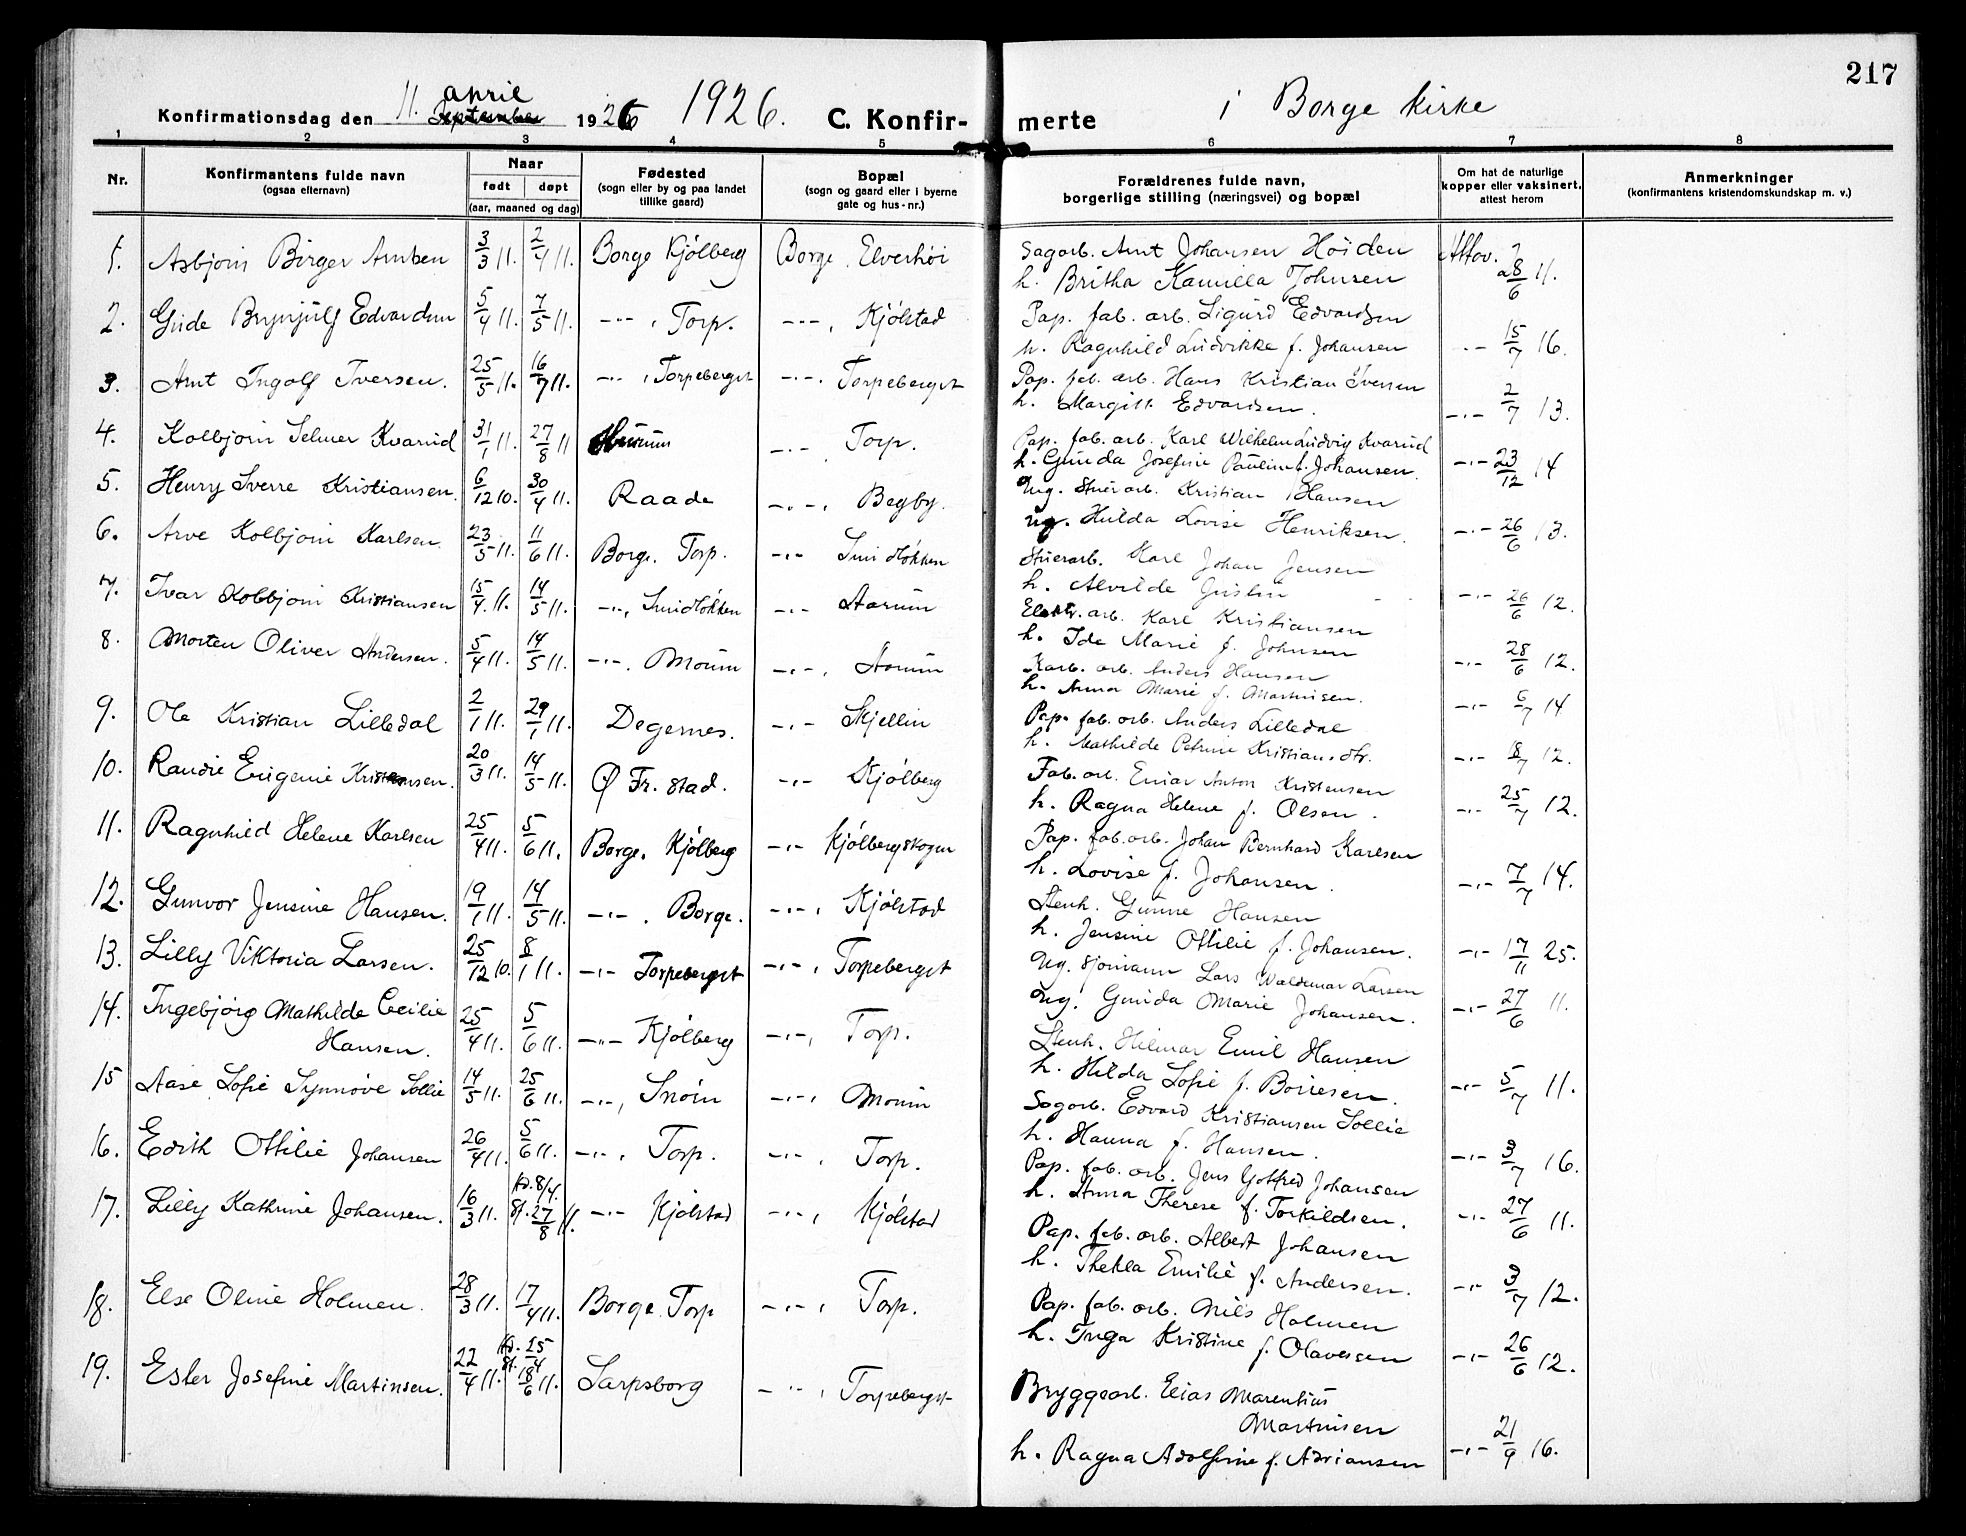 217
Konfirmationsdag den 11. april September 1926 1926. C. Konfir- merte i Borge kirke
1 2 3 4 5 6 7 8
Nr.
Konfirmantens fulde navn
(ogsaa efternavn)
Naar
født døpt
(aar, maaned og dag)
Fødested
(sogn eller by og paa landet
tillike gaard)
Bopæl
(sogn og gaard eller i byerne
gate og hus-nr.)
Forældrenes fulde navn,
borgerlige stilling (næringsvei) og bopæl
Om hat de naturlige
kopper eller vaksinert,
attest herom
Anmerkninger
(konfirmantens kristendomskundskap m. v.)
1. Asbjørn Birger Arntsen 3/3 11. 2/4 11. Borge Kjølberg Borge, Elverhøi
Sagarb. Arnt Johansen Høiden
h. Britha Kamilla Johnsen
28/6 11.
2. Gude Brynjulf Edvardsen 5/4 11. 7/5 11. -"-, Torp. -"-, Kjølstad
Pap. fab. arb. Sigurd Edvardsen
h. Ragnhild Ludvikke f. Johansen -"- 15/7 16.
3. Arnt Ingolf Iversen. 25/5 11. 16/7 11. -"-, Torpeberget -"-. Torpeberget
Pap. fab. arb. Hans Kristian Iversen
h. Margitt Edvardsen. -"- 2/7 13.
4. Kolbjørn Selmer Kvarud 31/1 11. 27/8 11 Hurum -"- Torp.
Pap. fab. arb. Karl Wilhelm Ludvig Kvarud
h. Gunda Josefine Pauline f. Johansen. -"- 23/12 14
5. Henry Sverre Kristiansen. 6/12 10. 30/4 11. Raade -"-, Begby.
Ug. Stuerarb. Kristian Hansen
ug. Hulda Lovise Henriksen. -"- 26/6 13.
6. Arve Kolbjørn Karlsen. 23/5 11. 11/6 11. Borge. Torp. -"- Smidløkken
Stuerarb. Karl Johan Jensen
h. Alvilde Justin -"- 26/6 12.
7. Ivar Kolbjørn Kristiansen 15/4. 11. 14/5 11. -"-, Smidløkken -"-
Elektr. arb. Karl Kristiansen
h. Ida Marie f. Johnsen -"- 28/6 12.
8. Morten Oliver Andersen. 5/4 11. 14/5 11. -"-. Moum -"-,
Karb. arb. Anders Hansen
h. Anna Marie f. Martinisen. -"- 6/7 14
9. Ole Kristian Lilledal 2/1 11. 29/1 11. Degernes. -"- Skjellin
Pap. fab. arb. Anders Lilledal
h. Mathilde Petrine Kristiansdtr. -"- 18/7 12.
10. Randi Eugenie Kristensen. 20/3 11. 14/5 11. Ø Fr. stad. -"- Kjølberg
Fab. arb. Einar Anton Kristensen
h. Ragna Helene f. Olsen. -"- 25/7 12.
11. Ragnhild Helene Karlsen 25/4 11. 5/6 11. Borge. Kjølberg -"- Kjølbergskogen
Pap. fab. arb. Johan Bernhard Karlsen
h. Lovise f. Johansen. -"- 7/7 14.
12. Gunvor Jensine Hansen. 19/1 11. 14/5 11. -"-. Borge. -"-, Kjølstad
Stenh. Gunne Hansen
h. Jensine Ottilie f. Johansen. -"- 17/11 25.
13. Lilly Viktoria Larsen. 25/12 10. 8/1 11. -"- Torpeberget -"-, Torpeberget
Ug. sjømann Lars Waldemar Larsen
Ug. Gunda Marie Johansen. -"- 27/6 11.
14. Ingebjørg Mathilde Cecilie
Hansen. 25/4 11. 5/6 11. -"- Kjølberg -"-, Torp.
Stenh. Hilmar Emil Hansen
h. Hilda Sofie f. Børresen. -"- 5/7 11.
15 Aase Sofie Synnøve Sollie 14/5 11. 25/6 11. -"-, -"-, Moum
Sagarb. Edvard Kristiansen Sollie
h. Hanna f. Hansen. -"- 3/7 16.
16. Edith Ottilie Johansen 26/4 11. 5/6 11. -"-, Torp. -"-, Torp.
Pap. fab. arb. Jens Gotfred Johansen
h. Anna Therese f. Torkildsen. -"- 27/6 11.
17. Lilly Kathrine Johansen. 16/3 11. hd. 8/4. st. 27/8 11. -"- Kjølstad -"-, Kjølstad
Pap. fab. arb. Albert Johansen
h. Thekla Emilie f. Andersen. -"- 3/7 12.
18. Else Oline Holmen. 28/3 11. 17/4 11. Borge. Torp -"-, Torp.
Pap. fab. arb. Nils Holmen
h. Inga Kristine f. Olavesen -"- 26/6 12.
19. Ester Josefine Martinsen. 22/4 11. hd. 25/4 st. 18/6 11. Sarpsborg -"-, Torpeberget
Bryggearb. Elias Marentius
Martinsen
h. Ragna Adolfine f. Adriansen -"- 21/9 16.